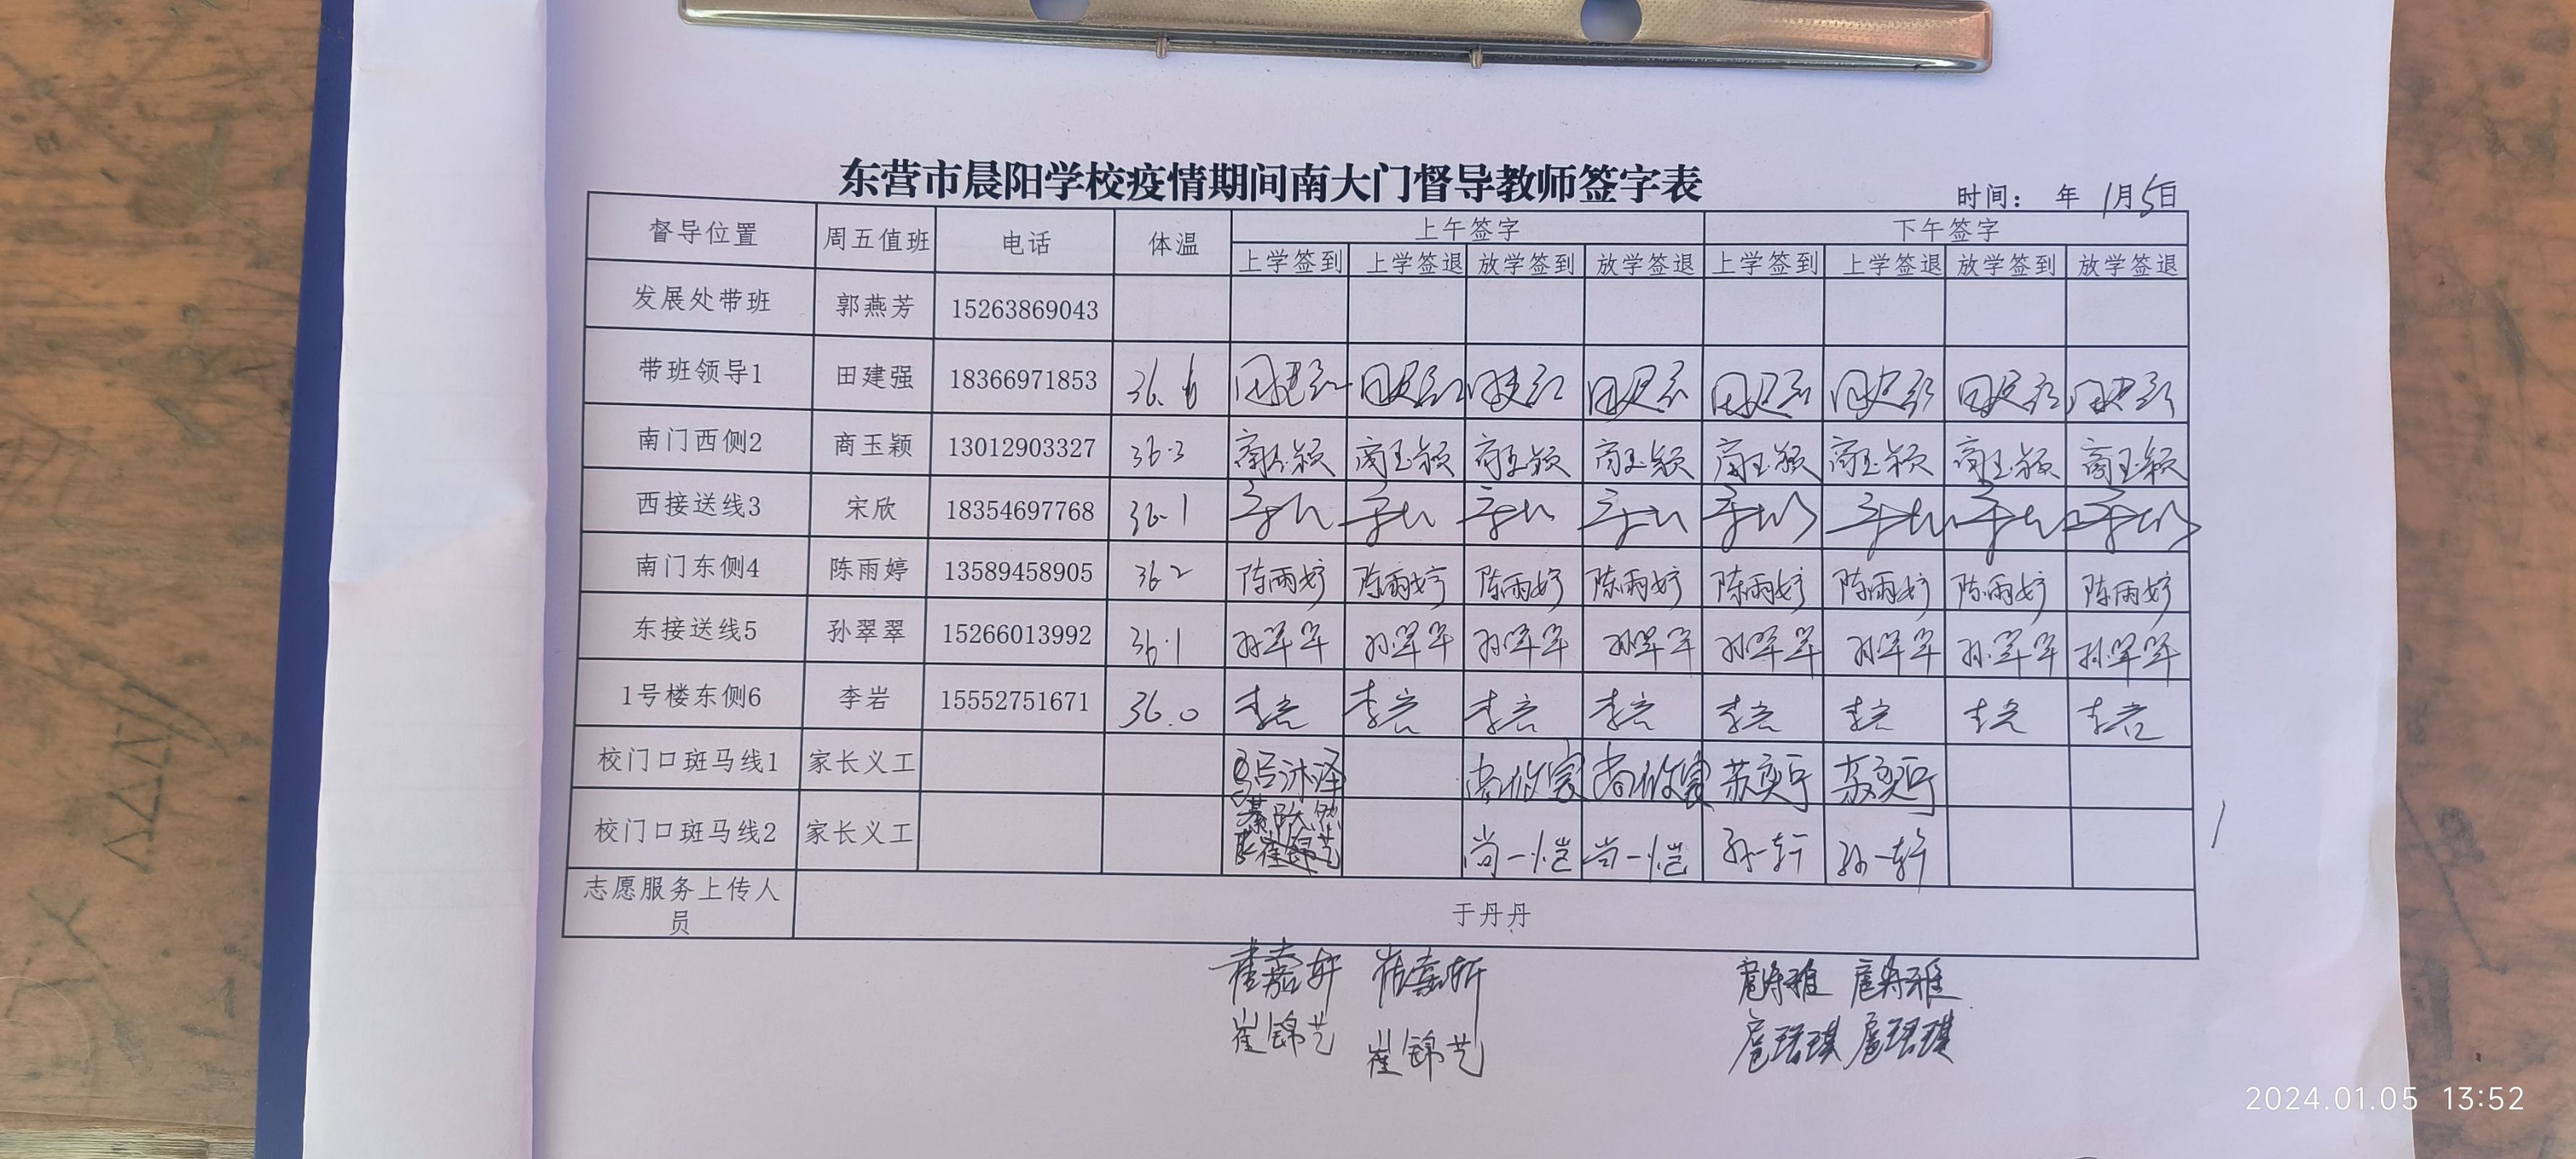 东营市晨阳学校疫情期间南大门督导教师签字表
时间： 年 1月5日
督导位置 周五值班 电话 体温 上午签字 下午签字
上学签到 上学签退 放学签到 放学签退 上学签到 上学签退 放学签到 放学签退
发展处带班 郭燕芳 15263869043
带班领导1 田建强 18366971853 36.6 田建强 田建强 田建强 田建强 田建强 田建强 田建强 田建强
南门西侧2 商玉颖 13012903327 36.3 商玉颖 商玉颖 商玉颖 商玉颖 商玉颖 商玉颖 商玉颖 商玉颖
西接送线3 宋欣 18354697768 36.1
南门东侧4 陈雨婷 13589458905 36.2 陈雨婷 陈雨婷 陈雨婷 陈雨婷 陈雨婷 陈雨婷 陈雨婷 陈雨婷
东接送线5 孙翠翠 15266013992 36.1 孙翠翠 孙翠翠 孙翠翠 孙翠翠 孙翠翠 孙翠翠 孙翠翠 孙翠翠
1号楼东侧6 李岩 15552751671 36.0 李岩 李岩 李岩 李岩 李岩 李岩 李岩 李岩
校门口斑马线1 家长义工 苏奕可 苏奕可
校门口斑马线2 家长义工 尚一恺 尚一恺 孙一轩 孙一轩
志愿服务上传人员 于丹丹
崔嘉轩 崔嘉轩
崔锦艺 崔锦艺
2024.01.05 13:52